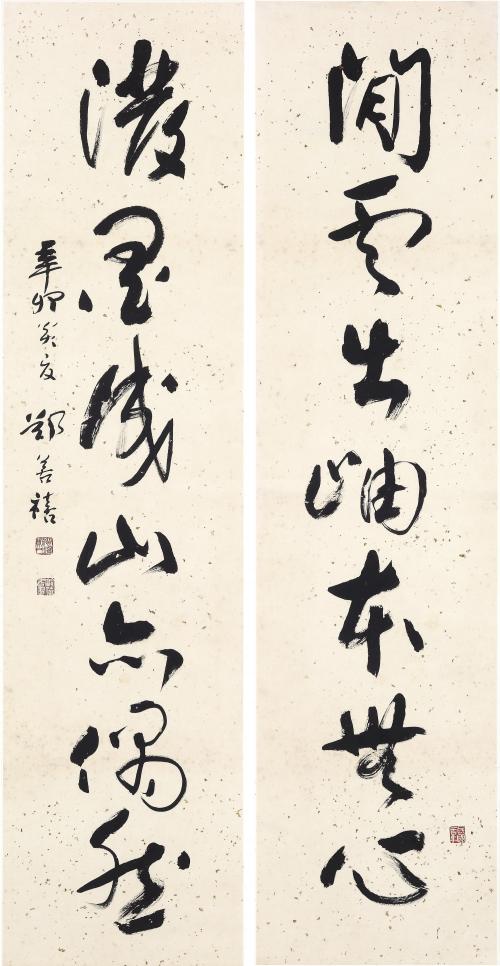 閒雲出岫本無心
潑墨成山亦偶然
辛卯炎夏 鄭善禧